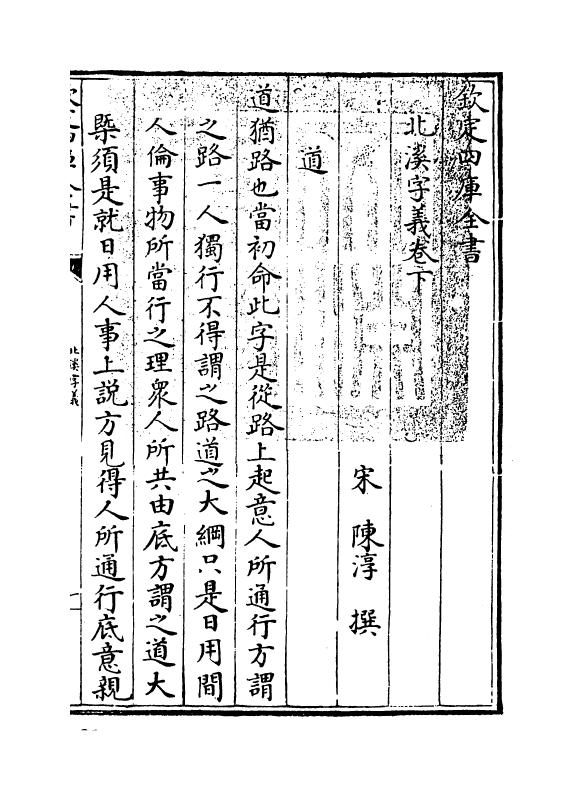 欽定四庫全書
北溪字義卷下
宋 陳淳 撰
道
道猶路也當初命此字是從路上起意人所通行方謂
之路一人獨行不得謂之路道之大綱只是日用間
人倫事物所當行之理衆人所共由底方謂之道大
槩須是就日用人事上說方見得人所通行底意親
北溪字義